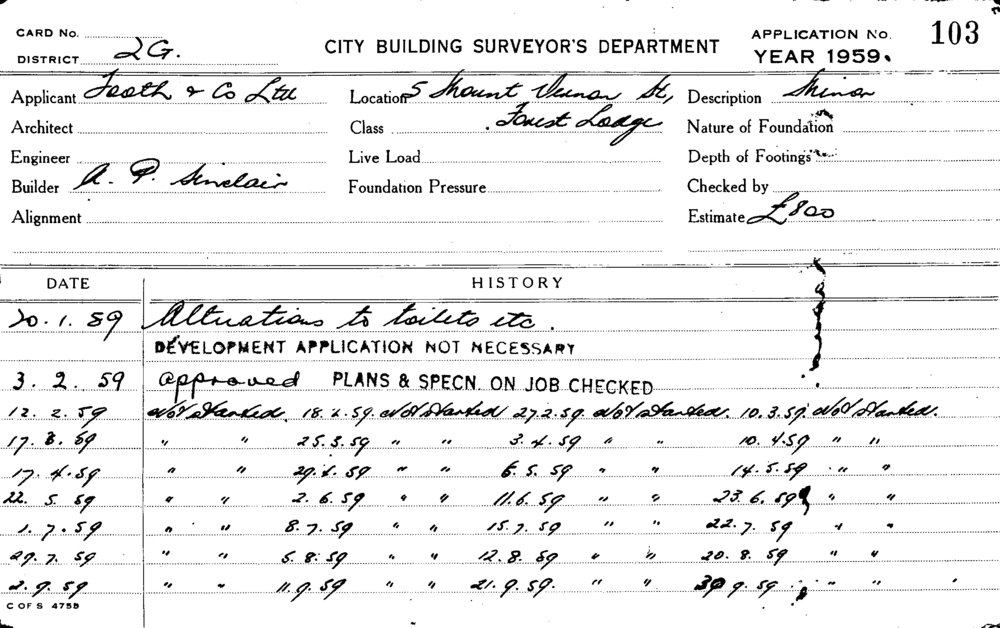 CARD No. CITY BUILDING SURVEYOR'S DEPARTMENT APPLICATION No. 103
DISTRICT 2G. YEAR 1959.
Applicant Tooth & Co Ltd Location 5 Mount Vernon St, Description Minor
Architect Class Forest Lodge Nature of Foundation
Engineer Live Load Depth of Footings
Builder A. P. Sinclair Foundation Pressure Checked by
Alignment Estimate £800
DATE HISTORY
20.1.59 Alterations to toilets etc.
DEVELOPMENT APPLICATION NOT NECESSARY
3.2.59 approved PLANS & SPECN. ON JOB CHECKED
12.2.59 Not Started. 18.2.59. Not Started 27.2.59. Not Started. 10.3.59. Not Started.
17.3.59 " " 25.3.59 " " 3.4.59 " " 10.4.59 " "
17.4.59 " " 29.4.59 " " 6.5.59 " " 14.5.59 " "
22.5.59 " " 2.6.59 " " 11.6.59 " " 23.6.59 " "
1.7.59 " " 8.7.59 " " 15.7.59 " " 22.7.59 " "
29.7.59 " " 5.8.59 " " 12.8.59 " " 20.8.59 " "
2.9.59 " " 11.9.59 " " 21.9.59. " " 30 9.59 " "
C OF S 475B